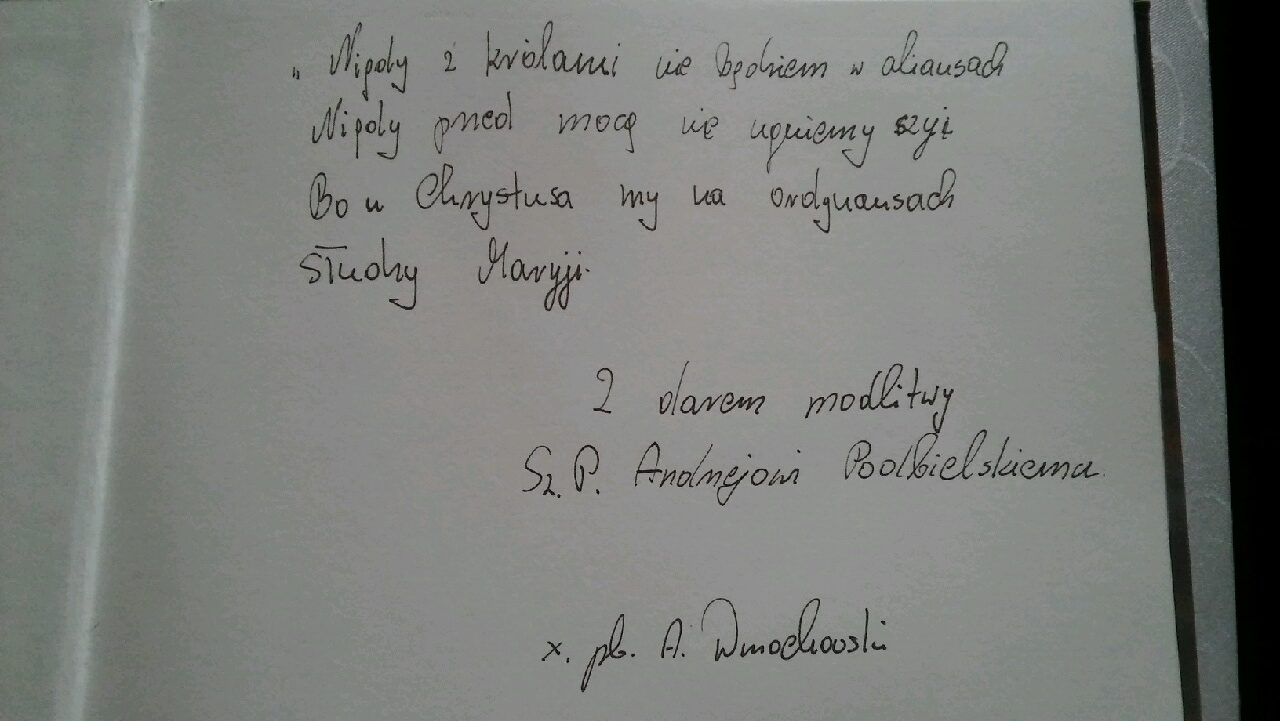 „Nigdy z królami nie będziem w aliansach
Nigdy przed mocą nie ugniemy szyi
Bo u Chrystusa my na ordynansach
Słudzy Maryji.
Z darem modlitwy
Sz. P. Andrzejowi Podbielskiemu
x. pb. A. Dmochowski